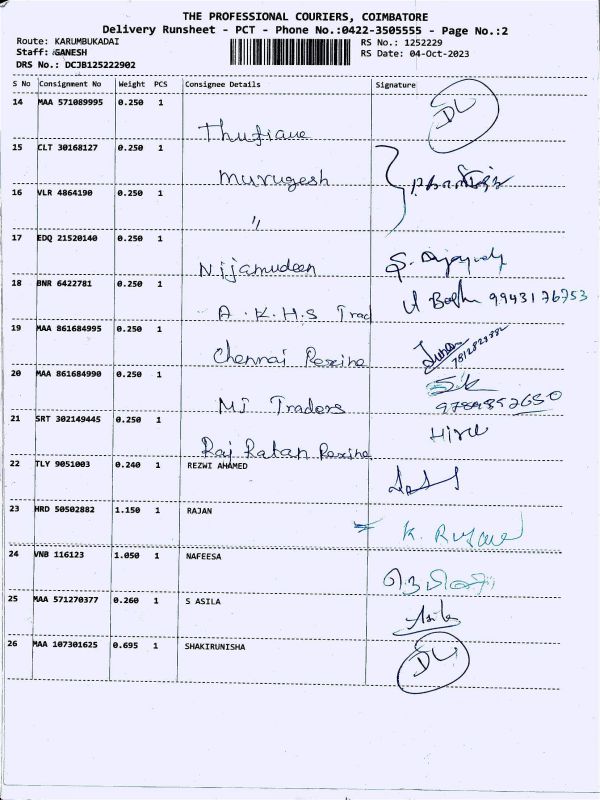 THE PROFESSIONAL COURIERS, COIMBATORE
Delivery Runsheet - PCT - Phone No.:0422-3505555 - Page No.:2
Route: KARUMBUKADAI RS No.: 1252229
Staff: GANESH RS Date: 04-Oct-2023
DRS No.: DCJB125222902
S No Consignment No Weight PCS Consignee Details Signature
14 MAA 571089995 0.250 1 DL
15 CLT 30168127 0.250 1
Murugesh
16 VLR 4864190 0.250 1
"
17 EDQ 21520140 0.250 1
Nijamudeen
18 BNR 6422781 0.250 1 9943176753
A.K.H.S Trad
19 MAA 861684995 0.250 1
Chennai Rexine
20 MAA 861684990 0.250 1 SK
MJ Traders
21 SRT 302149445 0.250 1
Raj Ratan Rexine
22 TLY 9051003 0.240 1 REZWI AHAMED
23 HRD 50502882 1.150 1 RAJAN
24 VNB 116123 1.050 1 NAFEESA
25 MAA 571270377 0.260 1 S ASILA
26 MAA 107301625 0.695 1 SHAKIRUNISHA DL